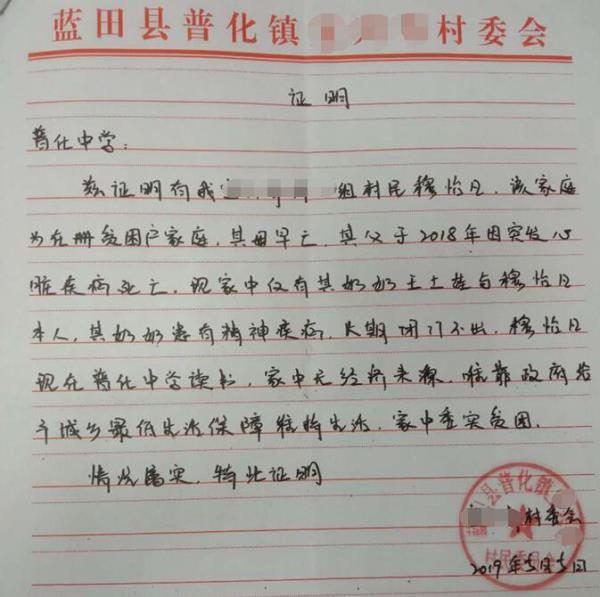 蓝田县普化镇村委会
证明
普化中学:
兹证明有我组村民穆怡凡,该家庭
为在册贫困户家庭,其母早亡,其父于2018年因突发心
脏疾病死亡,现家中仅有其奶奶王土荣与穆怡凡
本人,其奶奶患有精神疾病,长期闭门不出,穆怡凡
现在普化中学读书,家中无经济来源,唯靠政府给
予城乡最低生活保障维持生活,家中委实贫困.
情况属实,特此证明
村委会
2019年5月5日
县普化镇
村民委员会